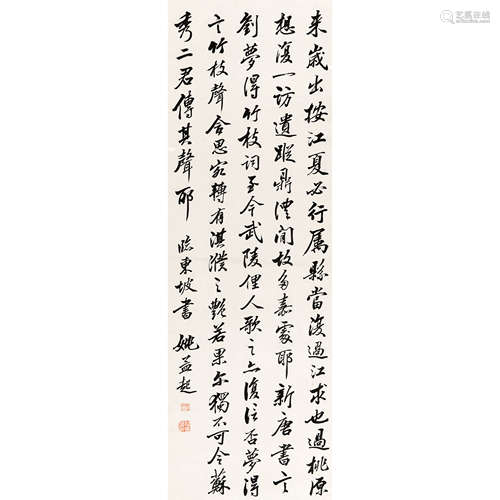 来歲出按江夏必行屬縣當渡過江求也過桃源
想復一訪遺蹤鼎澧間故多嘉處耶新唐書言
劉夢得竹枝詞至今武陵俚人歌之亦復信否夢得
言竹枝聲含思宛轉有淇濮之艷若果尔獨不可令蘇
秀二君傳其聲耶 臨東坡書 姚孟起